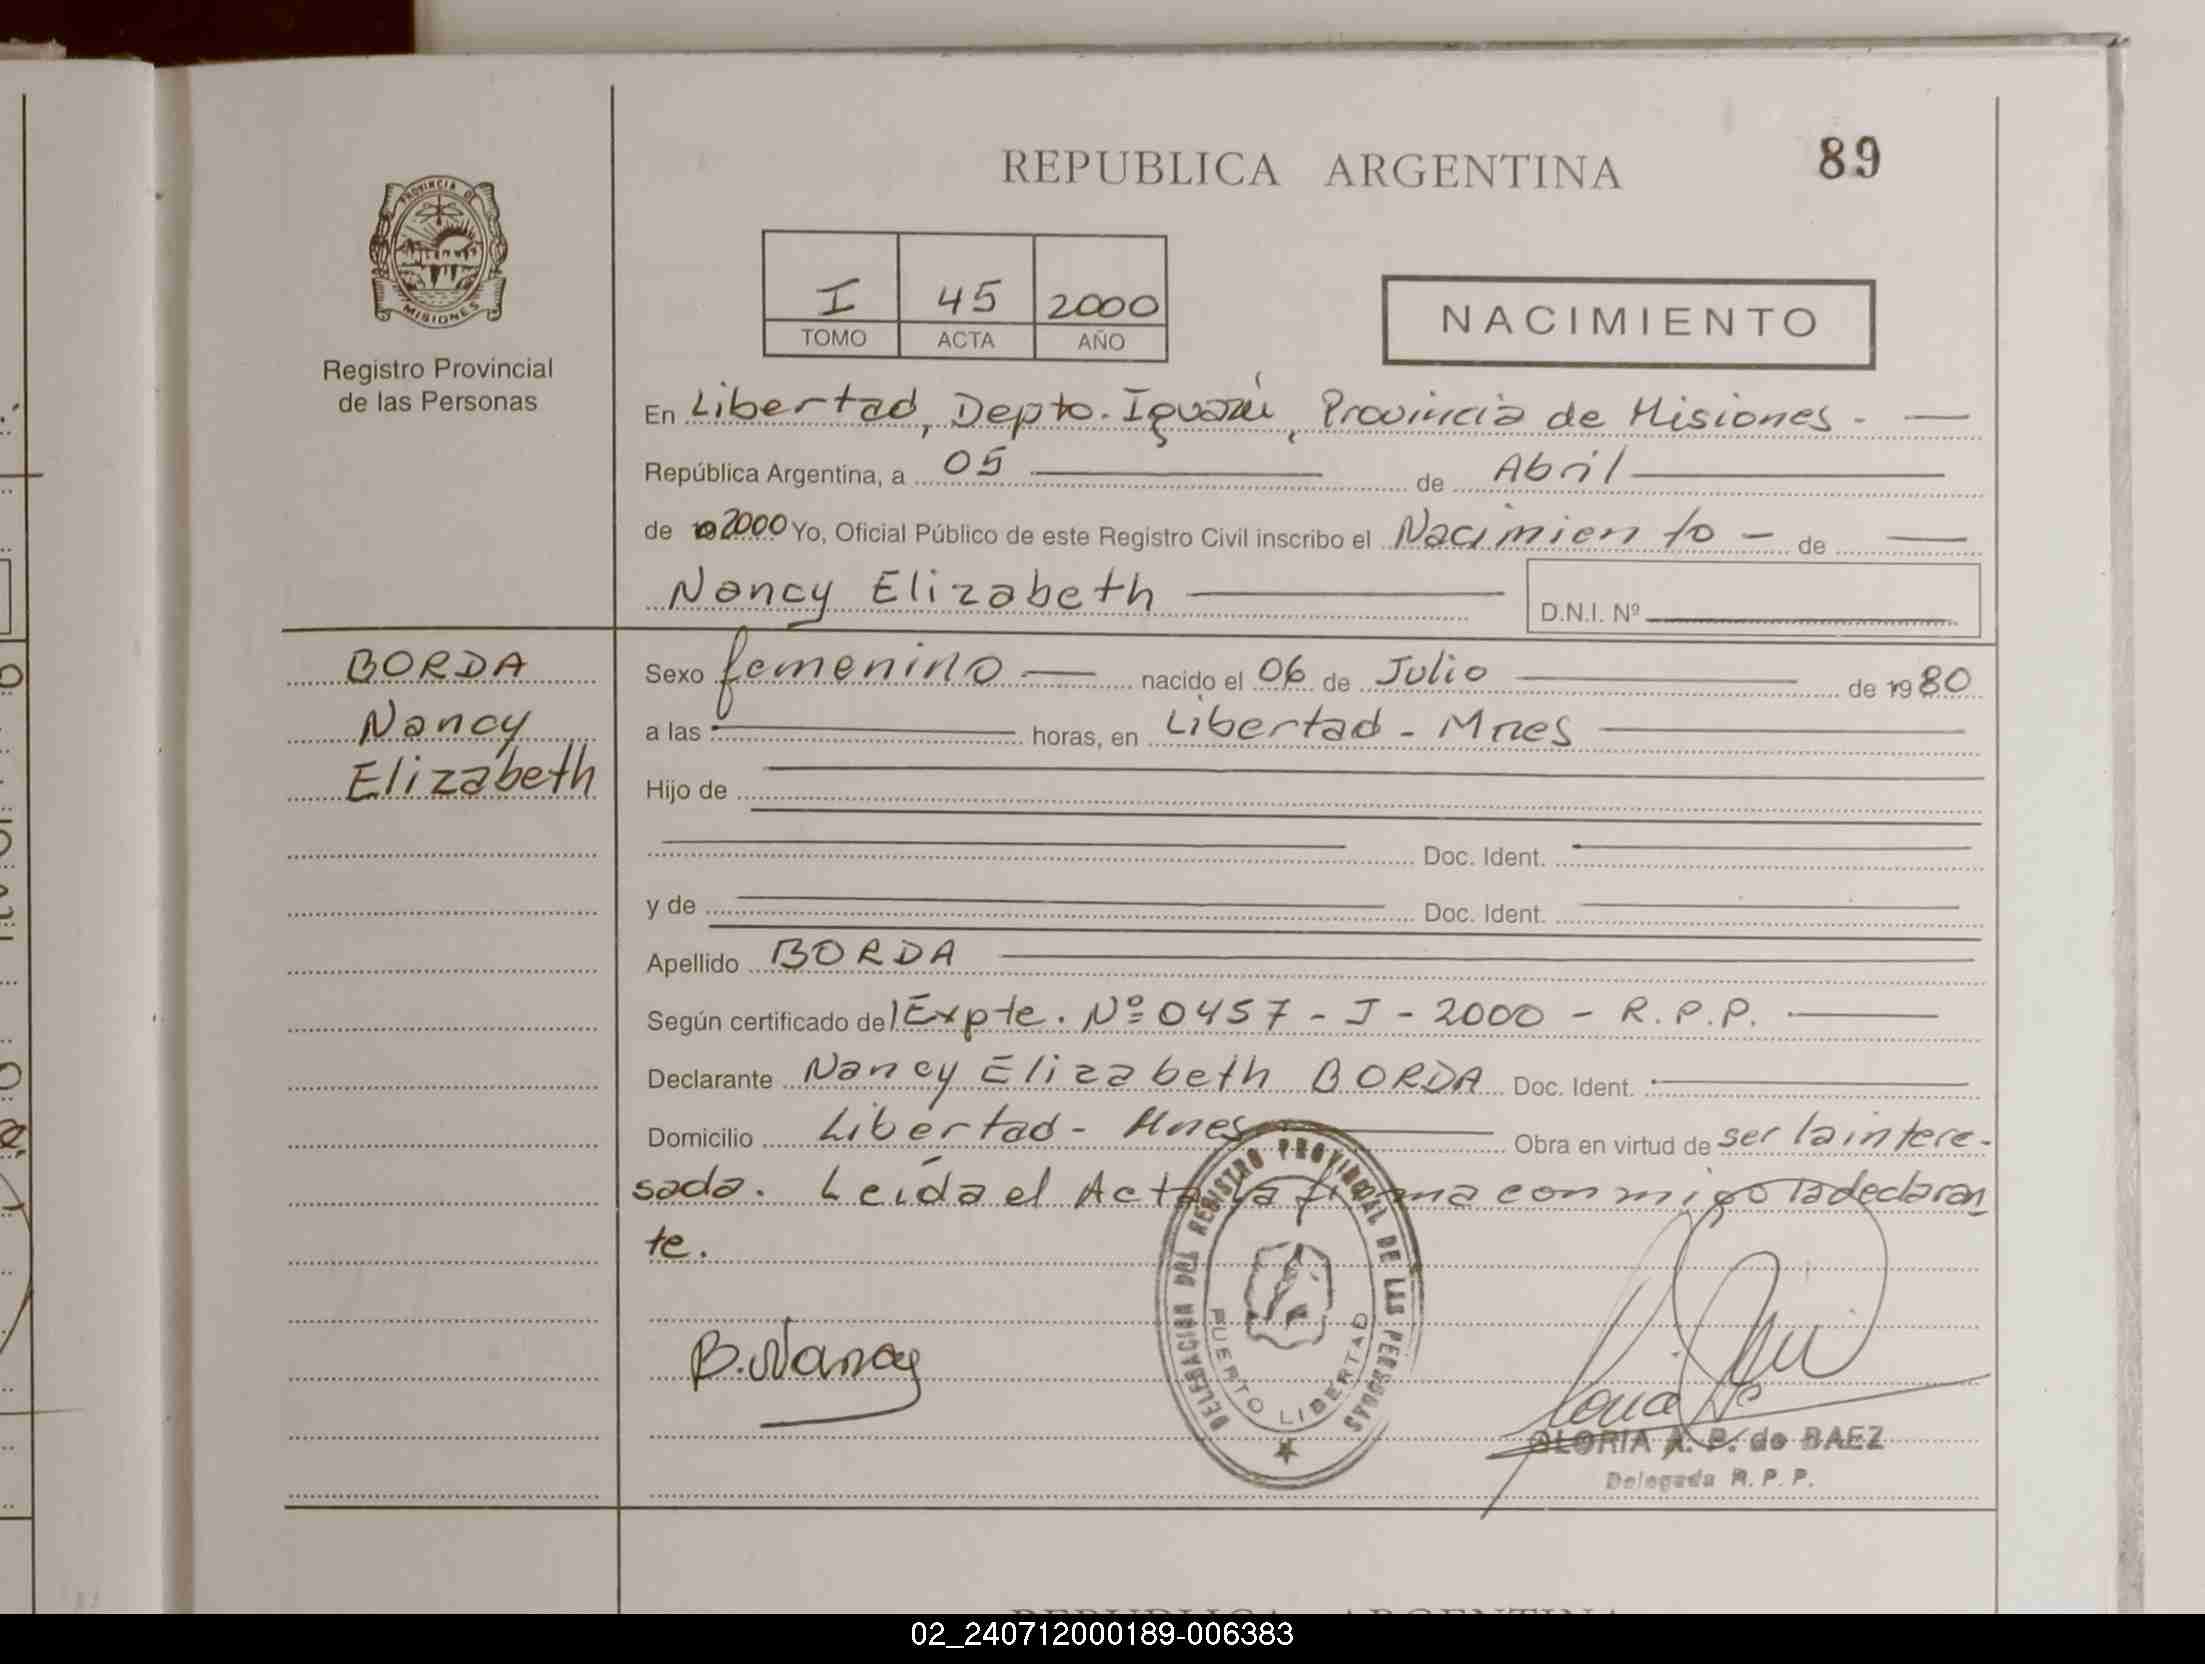 REPUBLICA ARGENTINA
89
PROVINCIA DE
MISIONES
Registro Provincial
de las Personas
I 45 2000
TOMO ACTA AÑO
NACIMIENTO
En Libertad, Depto. Iguazú, Provincia de Misiones.
República Argentina, a 05 de Abril
de 2000 Yo, Oficial Público de este Registro Civil inscribo el Nacimiento de
Nancy Elizabeth D.N.I. Nº
BORDA
Nancy
Elizabeth
Sexo femenino nacido el 06 de Julio de 1980
a las horas, en Libertad - Mnes
Hijo de
Doc. Ident.
y de Doc. Ident.
Apellido BORDA
Según certificado del Expte. Nº 0457 - J - 2000 - R.P.P.
Declarante Nancy Elizabeth BORDA Doc. Ident.
Domicilio Libertad - Mnes Obra en virtud de ser la intere-
sada. Leída el Acta la firma conmigo la declaran
te.
B. Nancy
DELEGACION DEL REGISTRO PROVINCIAL DE LAS PERSONAS
PUERTO LIBERTAD
GLORIA A. P. de BAEZ
Delegada R. P. P.
REPUBLICA ARGENTINA
02_240712000189-006383